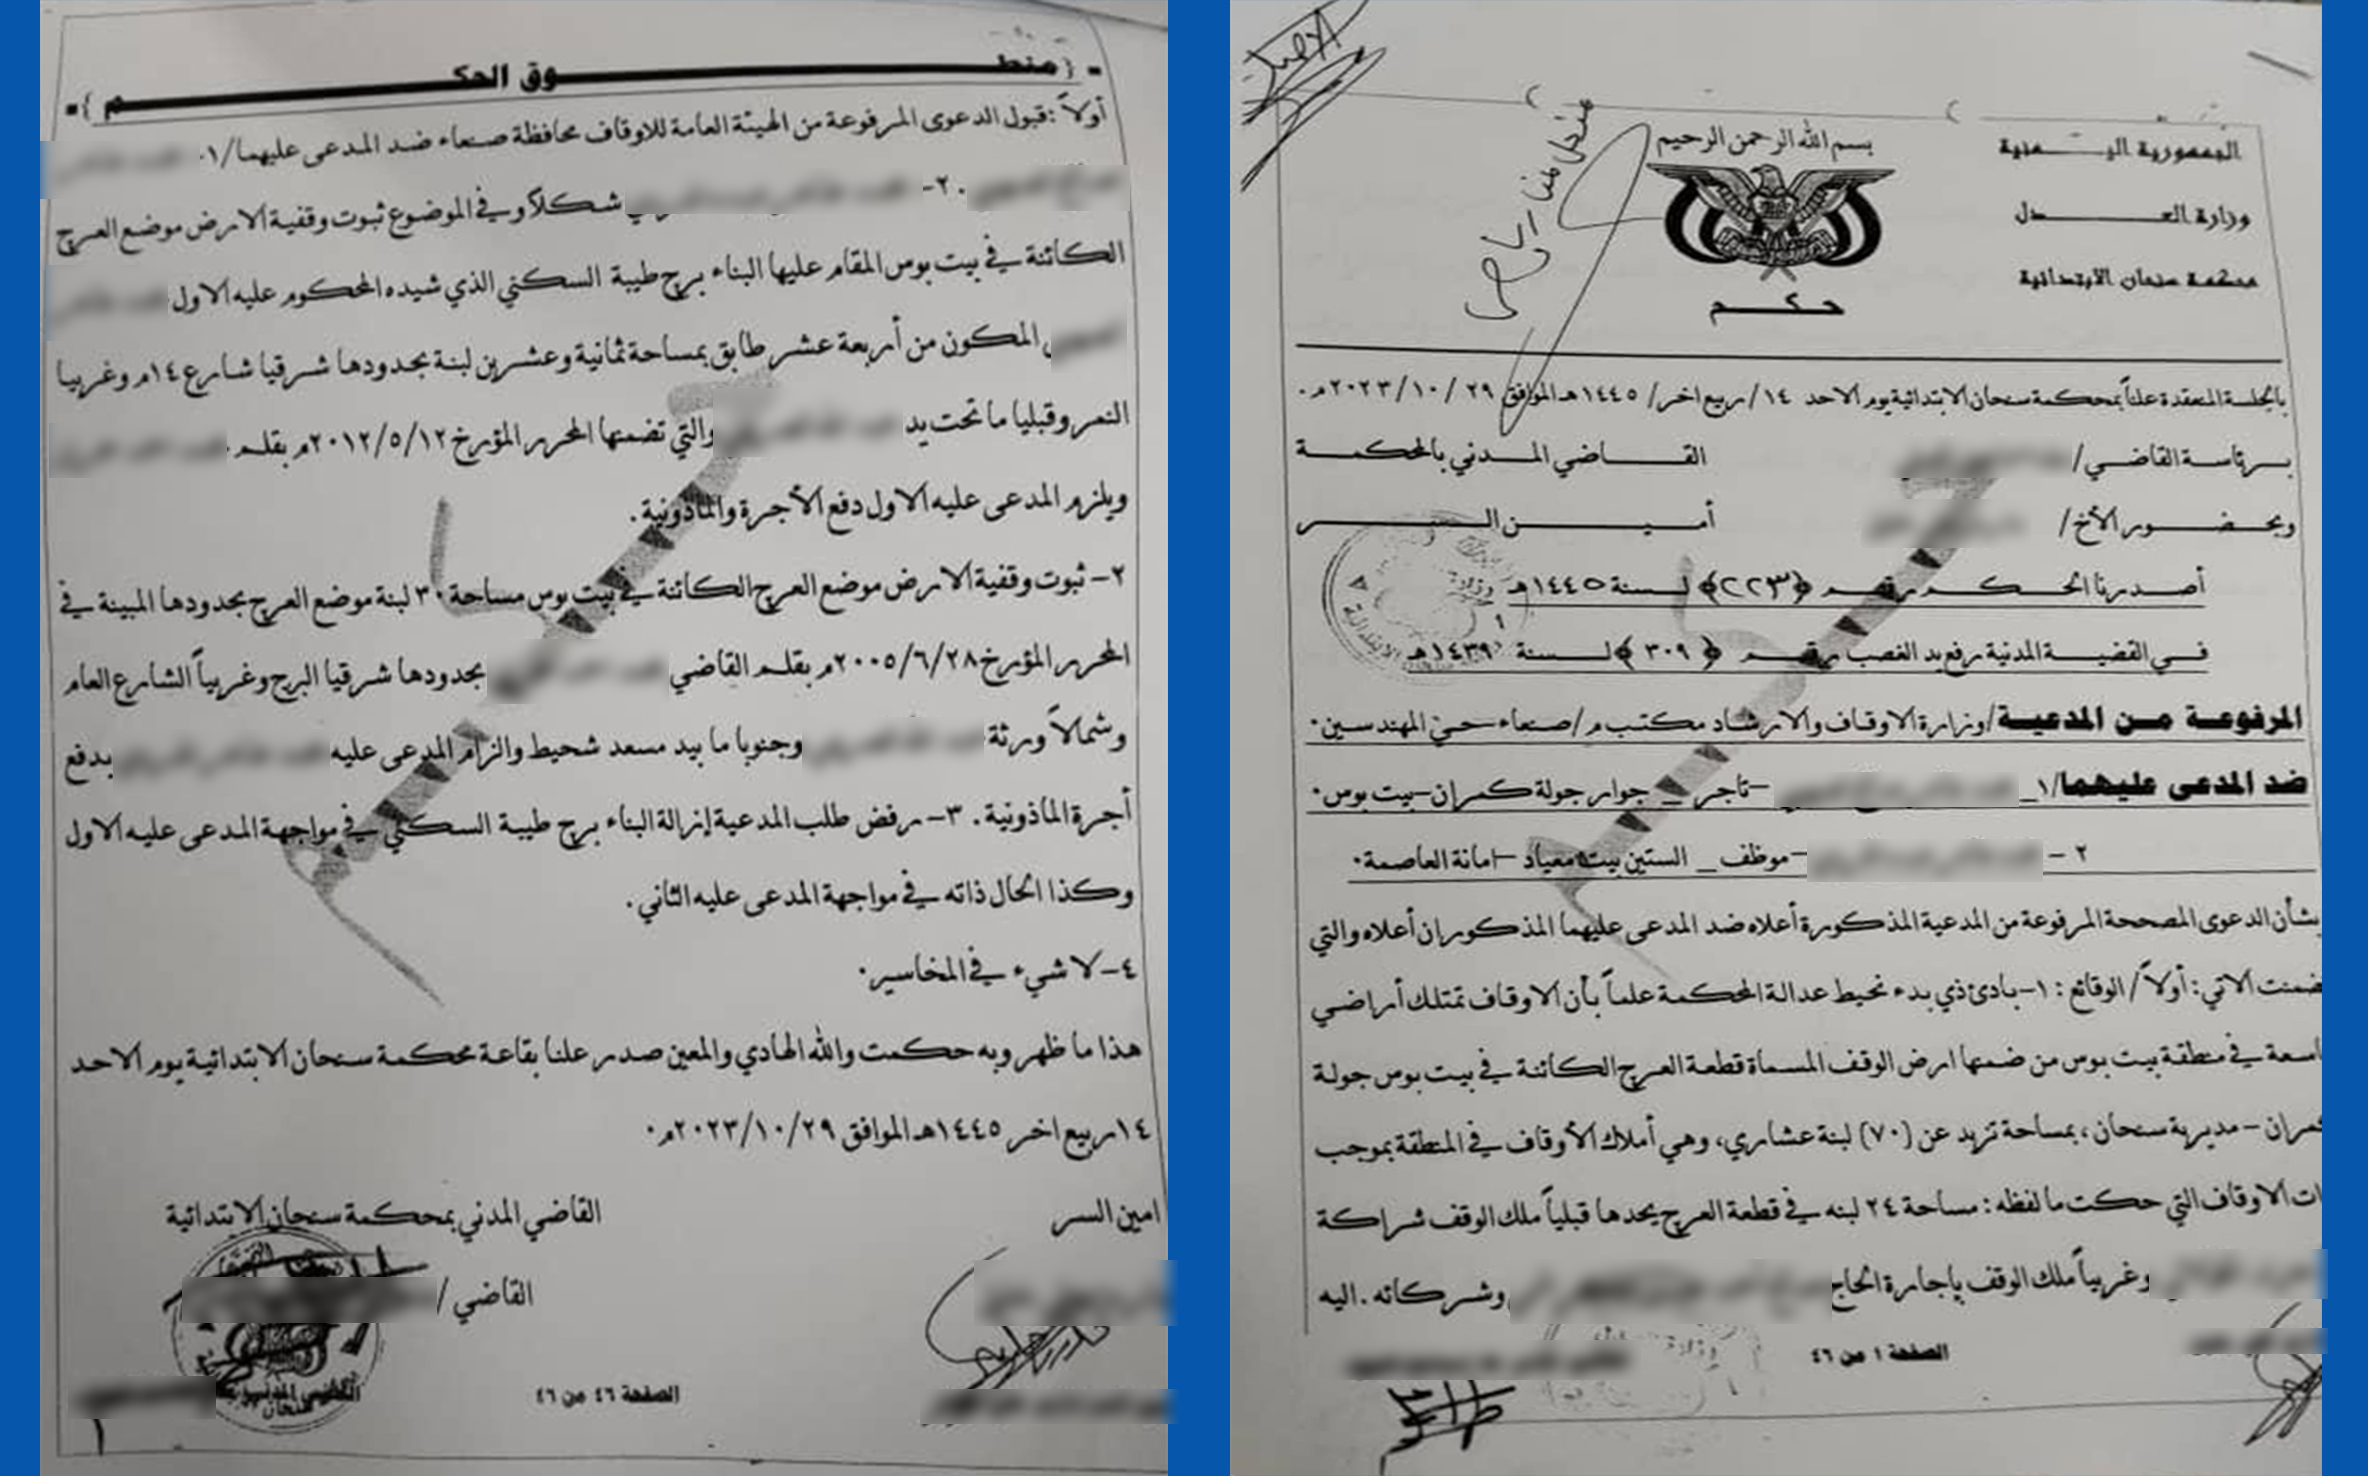 الجمهورية اليمنية
وزارة العدل
محكمة سنحان الابتدائية
بسم الله الرحمن الرحيم
حكم
بالجلسة المنعقدة علناً بمحكمة سنحان الابتدائية يوم الاحد ١٤/ربيع اخر/ ١٤٤٥هـ الموافق ٢٩ /٢٠٢٣/١٠م.
برئاسة القاضي/ القاضي المدني بالمحكمة
وبحضور الأخ/ أمين السر
أصدرنا الحكم رقم ﴿٢٢٣﴾ لسنة ١٤٤٥هـ
في القضية المدنية رفع يد الغصب رقم ﴿٣٠٩﴾ لسنة ١٤٣٩هـ
المرفوعة من المدعية/وزارة الاوقاف والارشاد مكتب م/صنعاء-حي المهندسين.
ضد المدعى عليهما/١_ -تاجر_ جوار جولة كمران-بيت بوس.
٢- -موظف_ الستين بيت معياد -امانة العاصمة.
بشأن الدعوى المصححة المرفوعة من المدعية المذكورة أعلاه ضد المدعى عليهما المذكوران أعلاه والتي
ضمنت الاتي: أولاً/الوقائع: ١-بادئ ذي بدء نحيط عدالة المحكمة علماً بأن الاوقاف تمتلك أراضي
اسعة في منطقة بيت بوس من ضمنها ارض الوقف المسماة قطعة العرج الكائنة في بيت بوس جولة
كمران-مديرية سنحان، بمساحة تزيد عن (٧٠) لبنة عشاري، وهي أملاك الأوقاف في المنطقة بموجب
ات الاوقاف التي حكت ما لفظه: مساحة ٢٤ لبنه في قطعة العرج يحدها قبلياً ملك الوقف شراكة
وغربياً ملك الوقف بإجارة الحاج وشركائه .اليه
الصفحة ١ من ٤٦
-{منطوق الحكم}-
أولاً :قبول الدعوى المرفوعة من الهيئة العامة للاوقاف محافظة صنعاء ضد المدعى عليهما/١.
.٢- شكلاً وفي الموضوع ثبوت وقفية الارض موضع العرج
الكائنة في بيت بوس المقام عليها البناء برج طيبة السكني الذي شيده المحكوم عليه الاول
المكون من أربعة عشر طابق بمساحة ثمانية وعشرين لبنة بحدودها شرقيا شارع ١٤م وغربيا
النمر وقبليا ما تحت يد والتي تضمنها المحرر المؤرخ ٢٠١٢/٥/١٢م بقلم
ويلزم المدعى عليه الاول دفع الأجرة والمأذونية.
٢- ثبوت وقفية الارض موضع العرج الكائنة في بيت بوس مساحة ٣٠ لبنة موضع العرج بحدودها المبينة في
المحرر المؤرخ ٢٠٠٥/٦/٢٨م بقلم القاضي بحدودها شرقيا البرج وغربياً الشارع العام
وشمالاً ورثة وجنوبا ما بيد مسعد شحيط والزام المدعى عليه بدفع
أجرة المأذونية. ٣-رفض طلب المدعية إزالة البناء برج طيبة السكني في مواجهة المدعى عليه الاول
وكذا الحال ذاته في مواجهة المدعى عليه الثاني.
٤-لا شيء في المخاسير.
هذا ما ظهر وبه حكمت والله الهادي والمعين صدر علنا بقاعة محكمة سنحان الابتدائية يوم الاحد
١٤ربيع اخر ١٤٤٥هـ الموافق ٢٠٢٣/١٠/٢٩م.
امين السر القاضي المدني بمحكمة سنحان الابتدائية
القاضي/
الصفحة ٤٦ من ٤٦